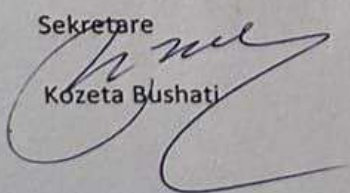 Sekretare
Kozeta Bushati